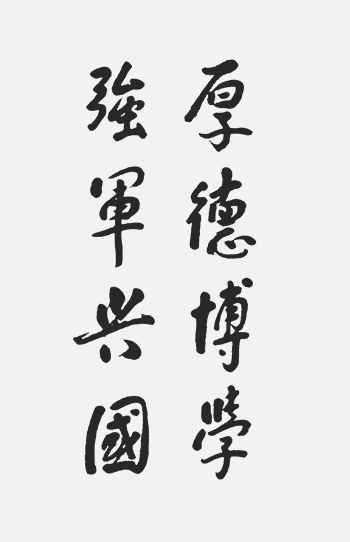 厚德博學
強軍興國